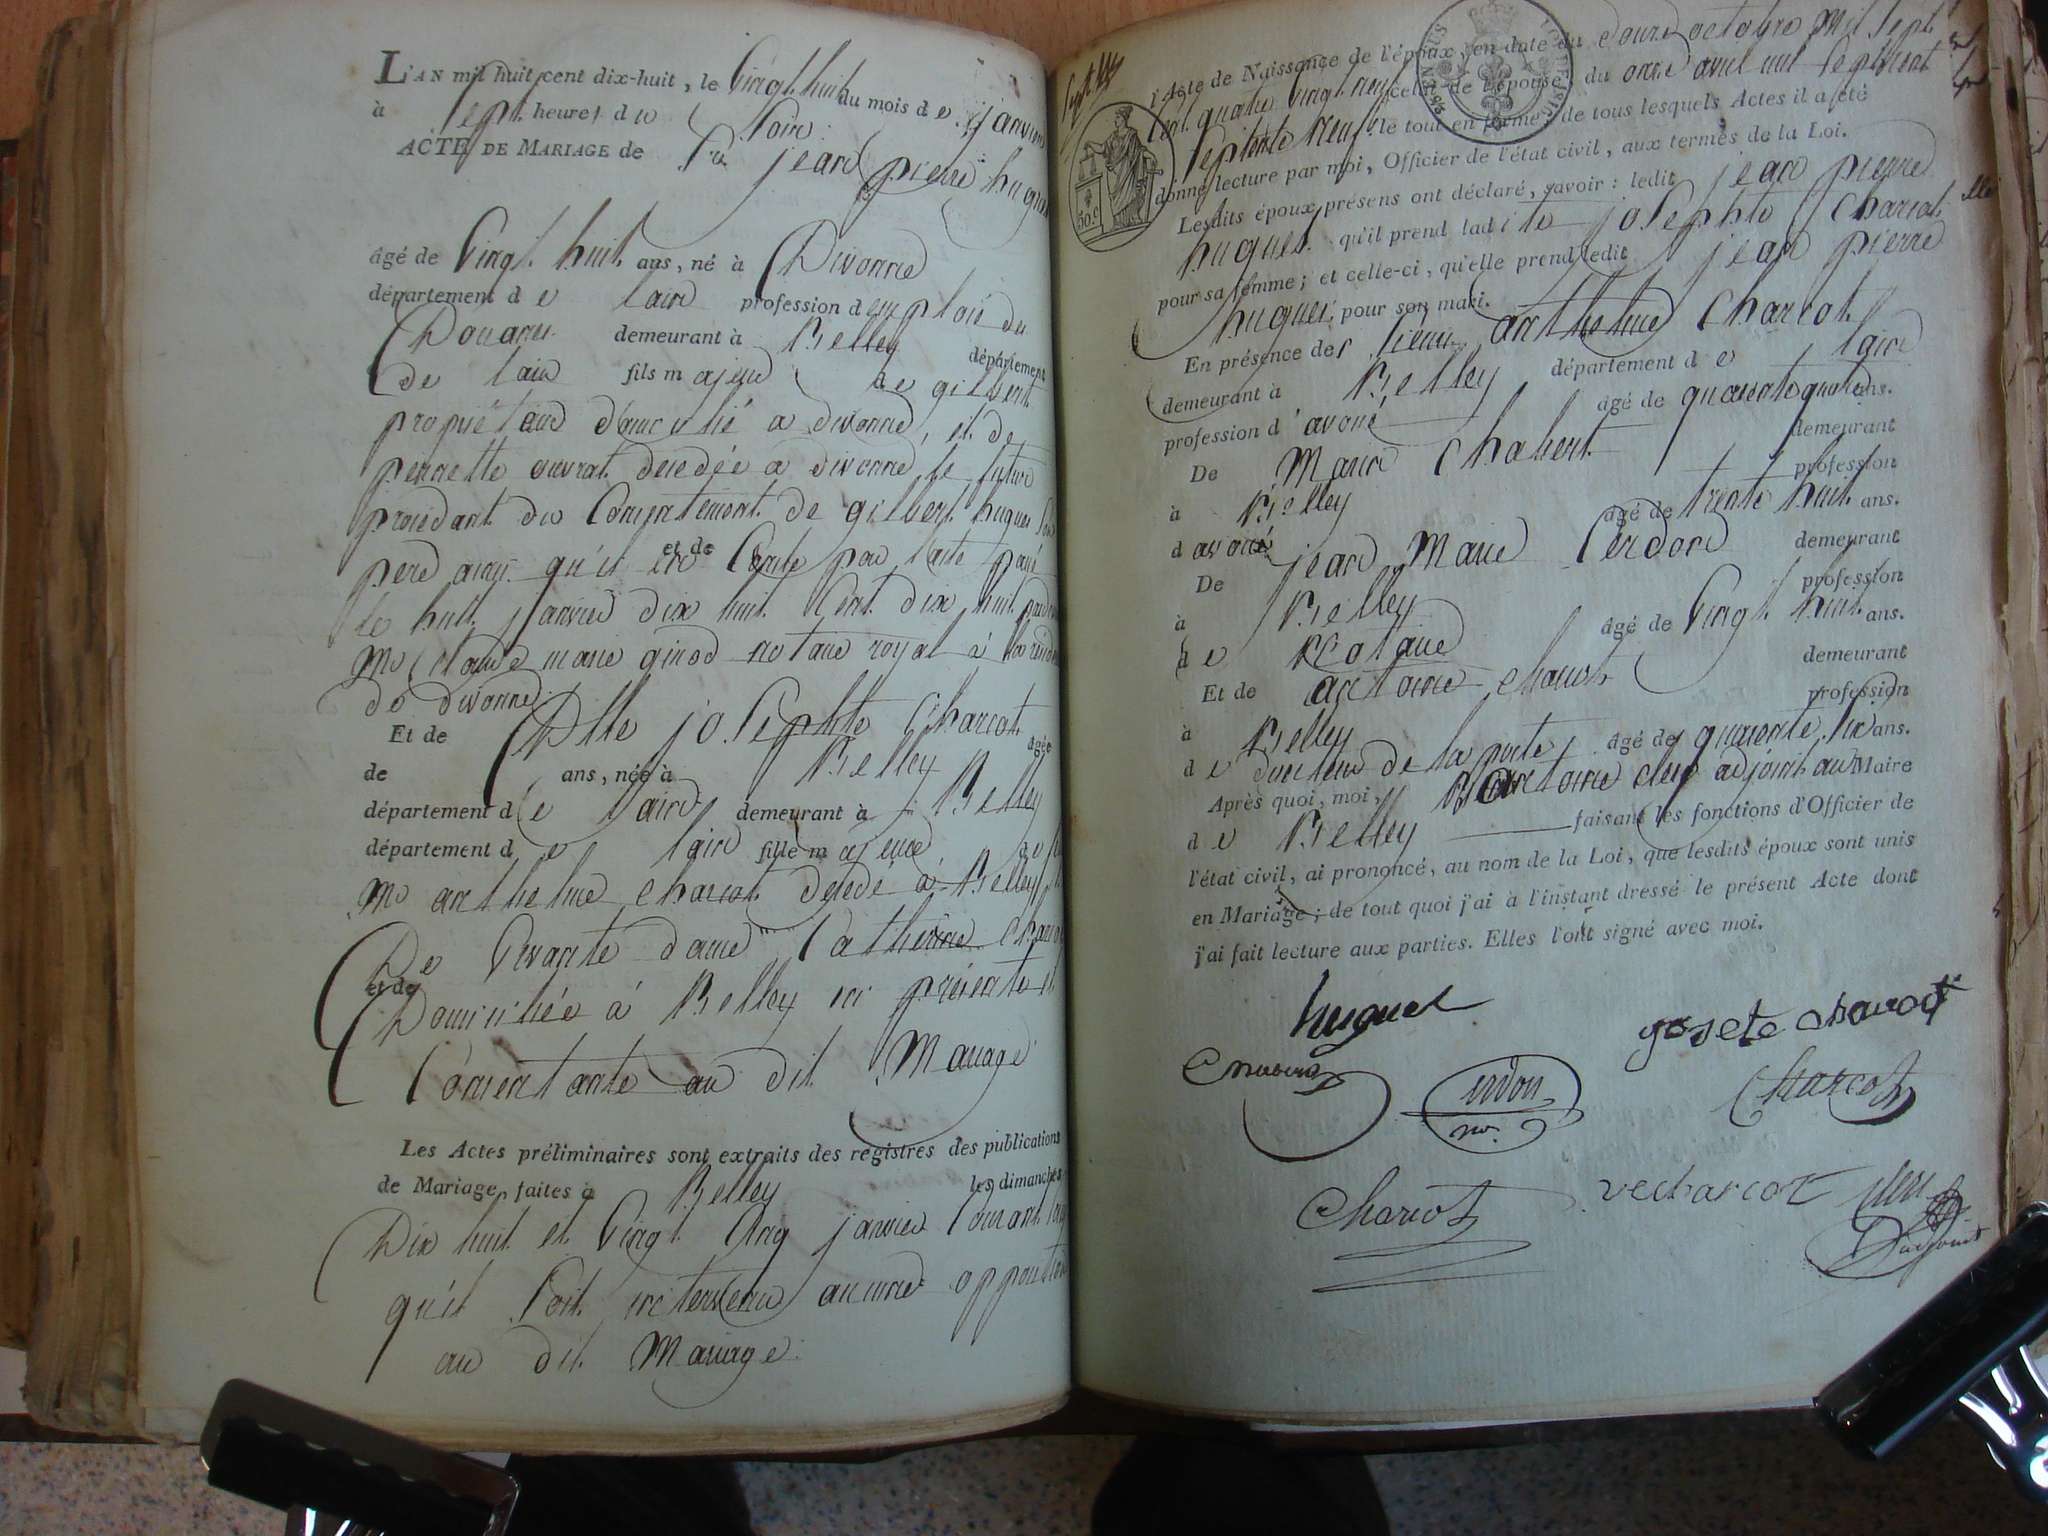 L'AN mil huit cent dix-huit, le Vingt huit du mois de janvier
à Sept heures du Soir
ACTE DE MARIAGE de Sr. jean pierre hugues
âgé de Vingt huit ans, né à Divonne
département de lain profession demploié du
Douanes demeurant à Belley département
de lain fils majeur de gilbert
propriétaire domicilié a divonne, et de
pernette décédée a divonne le futur
procédant du Consentement de gilbert hugues Son
pere ainsy qu'il en Conste par l'acte passé
le huit janvier dix huit Cent dix huit pardevant
Me Claude marie girod notaire royal à la résidence
de divonne
Et de Dlle josephte Charcot âgée
de ans, née à Belley
département de lain demeurant à Belley
département de lain fille majeure de feu
Me anthelme Charcot décédé à Belley
et de De Vivante dame Catherine
Domiciliée à Belley ici présente et
Consentante au dit Mariage
Les Actes préliminaires sont extraits des registres des publications
de Mariage, faites à Belley les dimanches
Dix huit et Vingt Cinq janvier Courant sans
qu'il Soit intervenu aucune opposition
au dit Mariage.
Sept. 
50 c.
l'Acte de Naissance de l'époux, en date du douze octobre mil Sept
Cent quatre Vingt neuf celui de l'épouse, du onze avril mil Sept Cent
Septente Neuf le tout en forme; de tous lesquels Actes il a été
donné lecture par moi, Officier de l'état civil, aux termes de la Loi.
Lesdits époux présens ont déclaré, savoir: ledit jean pierre
hugues qu'il prend ladite josephte Charcot
pour sa femme; et celle-ci, qu'elle prend ledit jean pierre
hugues pour son mari.
En présence des Sieurs anthelme Charcot
demeurant à Belley département de lain
profession d'avoué, âgé de quarente quatre ans.
De Marin Chabert demeurant
à Belley profession
d avoué âgé de trente huit ans.
De jean Marie Cerdon demeurant
à Belley profession
de Notaire âgé de Vingt huit ans.
Et de antoine Charcot demeurant
à Belley profession
de directeur de la poste, âgé de quarente Six ans.
Après quoi, moi, antoine adjoint au Maire
de Belley faisant les fonctions d'Officier de
l'état civil, ai prononcé, au nom de la Loi, que lesdits époux sont unis
en Mariage; de tout quoi j'ai à l'instant dressé le présent Acte dont
j'ai fait lecture aux parties. Elles l'ont signé avec moi.
hugues
josete charcot
cerdon
no.
Charcot
Charcot
ve charcot